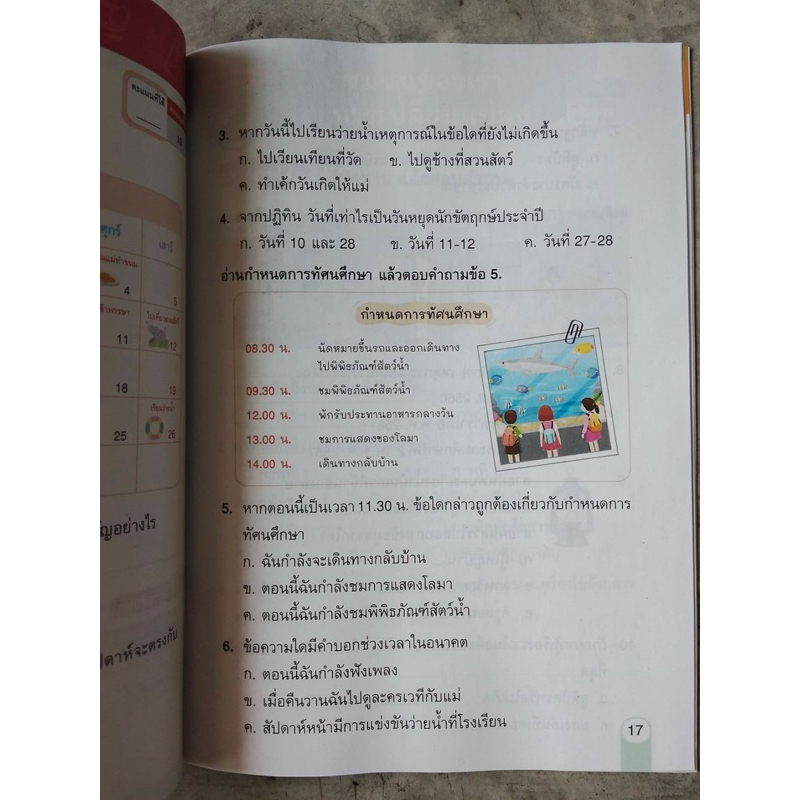 คะแนนที่ได้
10
ศุกร์
เสาร์
4
5
11
12
18
19
เรียนว่ายน้ำ
25
26
3. หากวันนี้ไปเรียนว่ายน้ำเหตุการณ์ในข้อใดที่ยังไม่เกิดขึ้น
ก. ไปเวียนเทียนที่วัด ข. ไปดูช้างที่สวนสัตว์
ค. ทำเค้กวันเกิดให้แม่
4. จากปฏิทิน วันที่เท่าไรเป็นวันหยุดนักขัตฤกษ์ประจำปี
ก. วันที่ 10 และ 28 ข. วันที่ 11-12 ค. วันที่ 27-28
อ่านกำหนดการทัศนศึกษา แล้วตอบคำถามข้อ 5.
กำหนดการทัศนศึกษา
08.30 น. นัดหมายขึ้นรถและออกเดินทาง
ไปพิพิธภัณฑ์สัตว์น้ำ
09.30 น. ชมพิพิธภัณฑ์สัตว์น้ำ
12.00 น. พักรับประทานอาหารกลางวัน
13.00 น. ชมการแสดงของโลมา
14.00 น. เดินทางกลับบ้าน
5. หากตอนนี้เป็นเวลา 11.30 น. ข้อใดกล่าวถูกต้องเกี่ยวกับกำหนดการ
ทัศนศึกษา
ก. ฉันกำลังจะเดินทางกลับบ้าน
ข. ตอนนี้ฉันกำลังชมการแสดงโลมา
ค. ตอนนี้ฉันกำลังชมพิพิธภัณฑ์สัตว์น้ำ
6. ข้อความใดมีคำบอกช่วงเวลาในอนาคต
ก. ตอนนี้ฉันกำลังฟังเพลง
ข. เมื่อคืนวานฉันไปดูละครเวทีกับแม่
ค. สัปดาห์หน้ามีการแข่งขันว่ายน้ำที่โรงเรียน
17